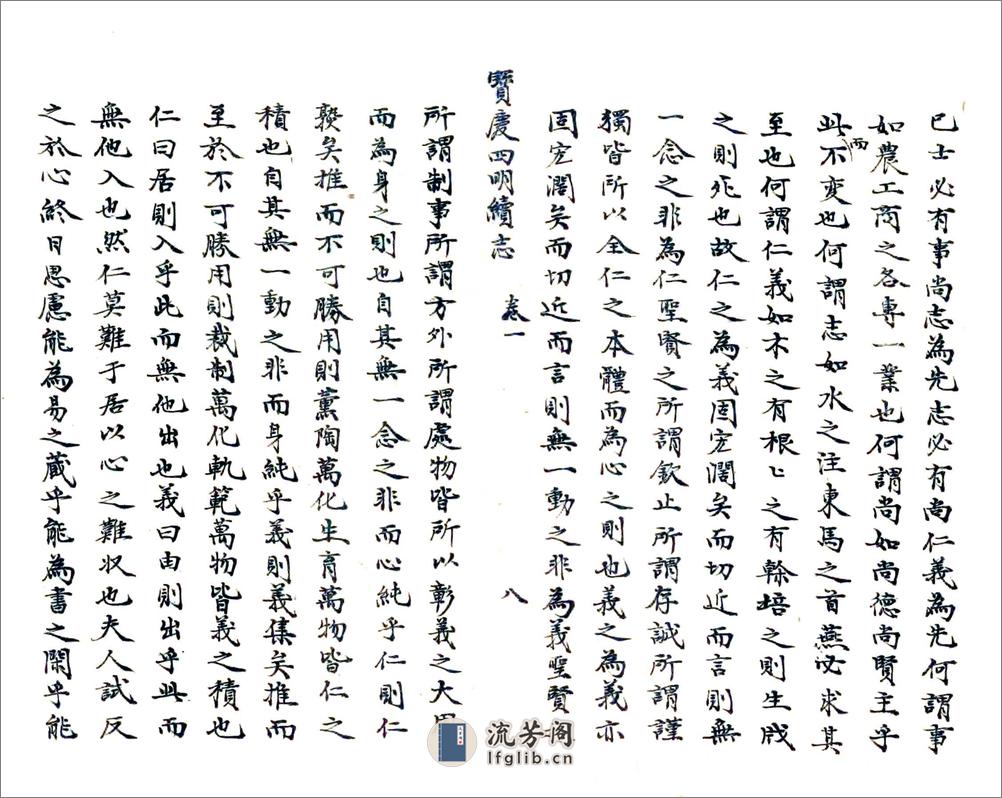 已士必有事尚志為先志必有尚仁義為先何謂事
如農工商之各專一業也何謂尚如尚德尚賢主乎
此而不変也何謂志如水之注東馬之首燕必求其
至也何謂仁義如木之有根〻之有榦培之則生戕
之則死也故仁之為義固宏濶矣而切近而言則無
一念之非為仁聖賢之所謂欽止所謂存誠所謂謹
獨皆所以全仁之本體而為心之則也義之為義亦
固宏濶矣而切近而言則無一動之非為義聖賢
寶慶四明續志 卷一 八
所謂制事所謂方外所謂處物皆所以彰義之大用
而為身之則也自其無一念之非而心純乎仁則仁
孰矣推而不可勝用則薰陶萬化生育萬物皆仁之
積也自其無一動之非而身純乎義則義集矣推而
至於不可勝用則裁制萬化軌範萬物皆義之積也
仁曰居則入乎此而無他出也義曰由則出乎此而
無他入也然仁莫難于居以心之難收也夫人試反
之於心終日思慮能為易之蔵乎能為書之閑乎能
流芳阁
lfglib.cn